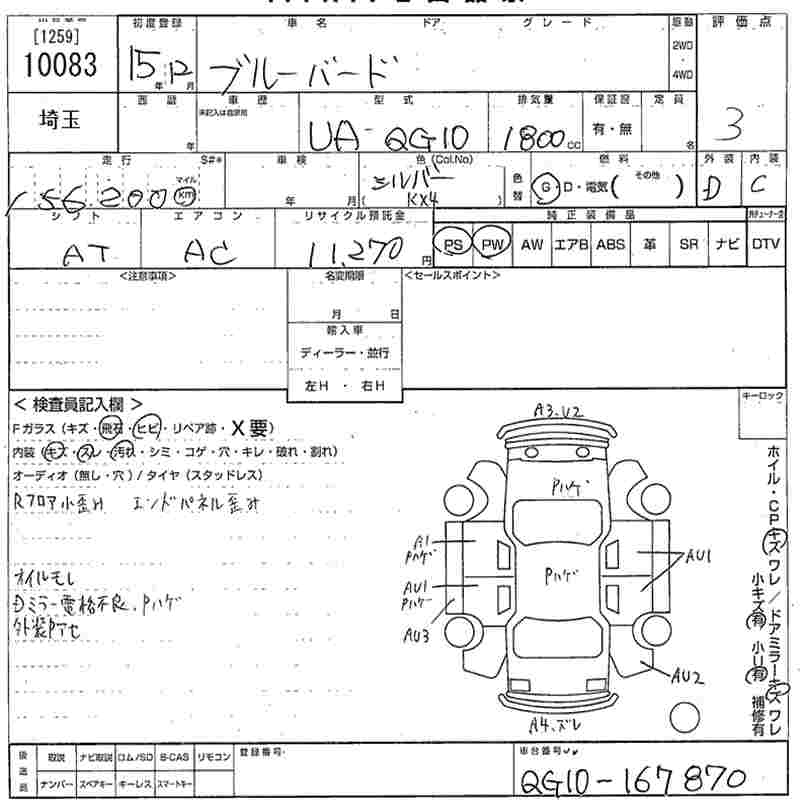 [1259]
10083
初度登録
15年12月
車名 ドア グレード
ブルーバード
駆動
2WD
4WD
評価点
3
埼玉
西暦
年
車歴
未記入は自家用
型式
UA-QG10
排気量
1800cc
保証書
有・無
定員
名
走行 S#*
156,200
マイル
km
車検
年 月
色(Col.No)
シルバー
( KX4 )
色替
燃料
G・D・電気( その他 )
外装
D
内装
C
シフト
AT
エアコン
AC
リサイクル預託金
11,270円
純正装備品
PS PW AW エアB ABS 革 SR ナビ DTV
<注意事項>
名変期限
月 日
輸入車
ディーラー・並行
左H ・ 右H
<セールスポイント>
キーロック
< 検査員記入欄 >
Fガラス(キズ・飛石・ヒビ・リペア跡・X要)
内装(キズ・スレ・汚れ・シミ・コゲ・穴・キレ・破れ・割れ)
オーディオ(無し・穴)/タイヤ(スタッドレス)
Rフロア小歪み エンドパネル歪み
オイルモレ
Dミラー電格不良、Pハゲ
外装Pヤセ
A3.U2
Pハゲ
A1
Pハゲ
AU1
Pハゲ
AU3
Pハゲ
AU1
AU2
A4.ズレ
ホイル・CPキズ ワレ/ドアミラーキズ ワレ
小キズ(有) 小U(有) 補修有
後送品
取説 ナビ取説 ロム/SD B-CAS リモコン
ナンバー スペアキー キーレス スマートキー
登録番号
車台番号
QG10-167870